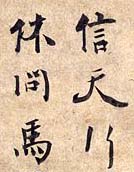 信天行
休問馬